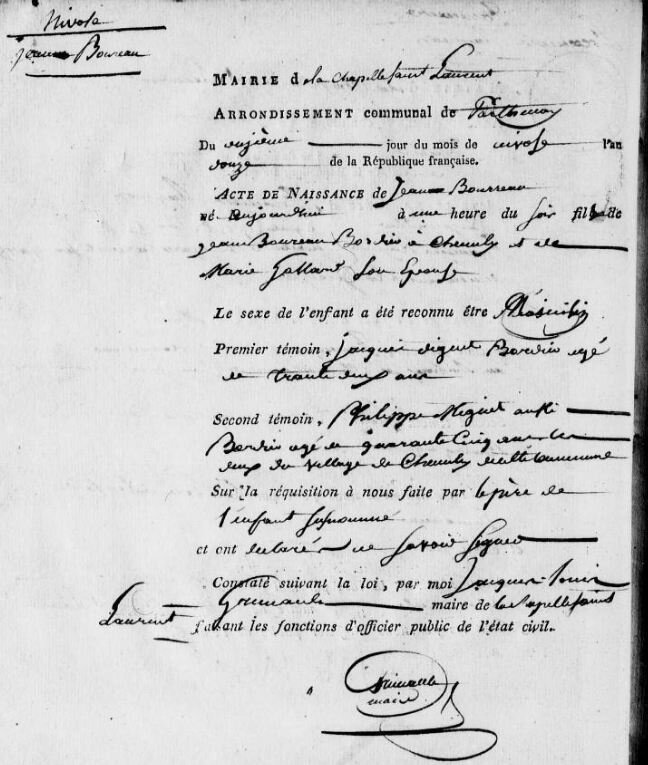 Nivose
Jean Boureau
MAIRIE d la chapelle saint Laurent
ARRONDISSEMENT communal de Parthenay
Du onzième jour du mois de nivose l'an
douze de la République française.
ACTE DE NAISSANCE de Jean Bourreau
né aujourdhui à une heure du soir fils de
jean Boureau Bordier à Chemilly et de
Marie Gallard son Epouse
Le sexe de l'enfant a été reconnu être Masculin
Premier témoin, jacques Bordier agé
de trante deux ans
Second témoin, Philippe Miget aussi
Bordier agé de quarante Cinq ans les
deux du village de Chemilly commune
Sur la réquisition à nous faite par le père de
l'enfant susnommé
et ont declaré ne savoir signer
Constaté suivant la loi, par moi Jacques Louis
Grimault maire de la Chapelle saint
Laurent faisant les fonctions d'officier public de l'état civil.
Grimault
maire